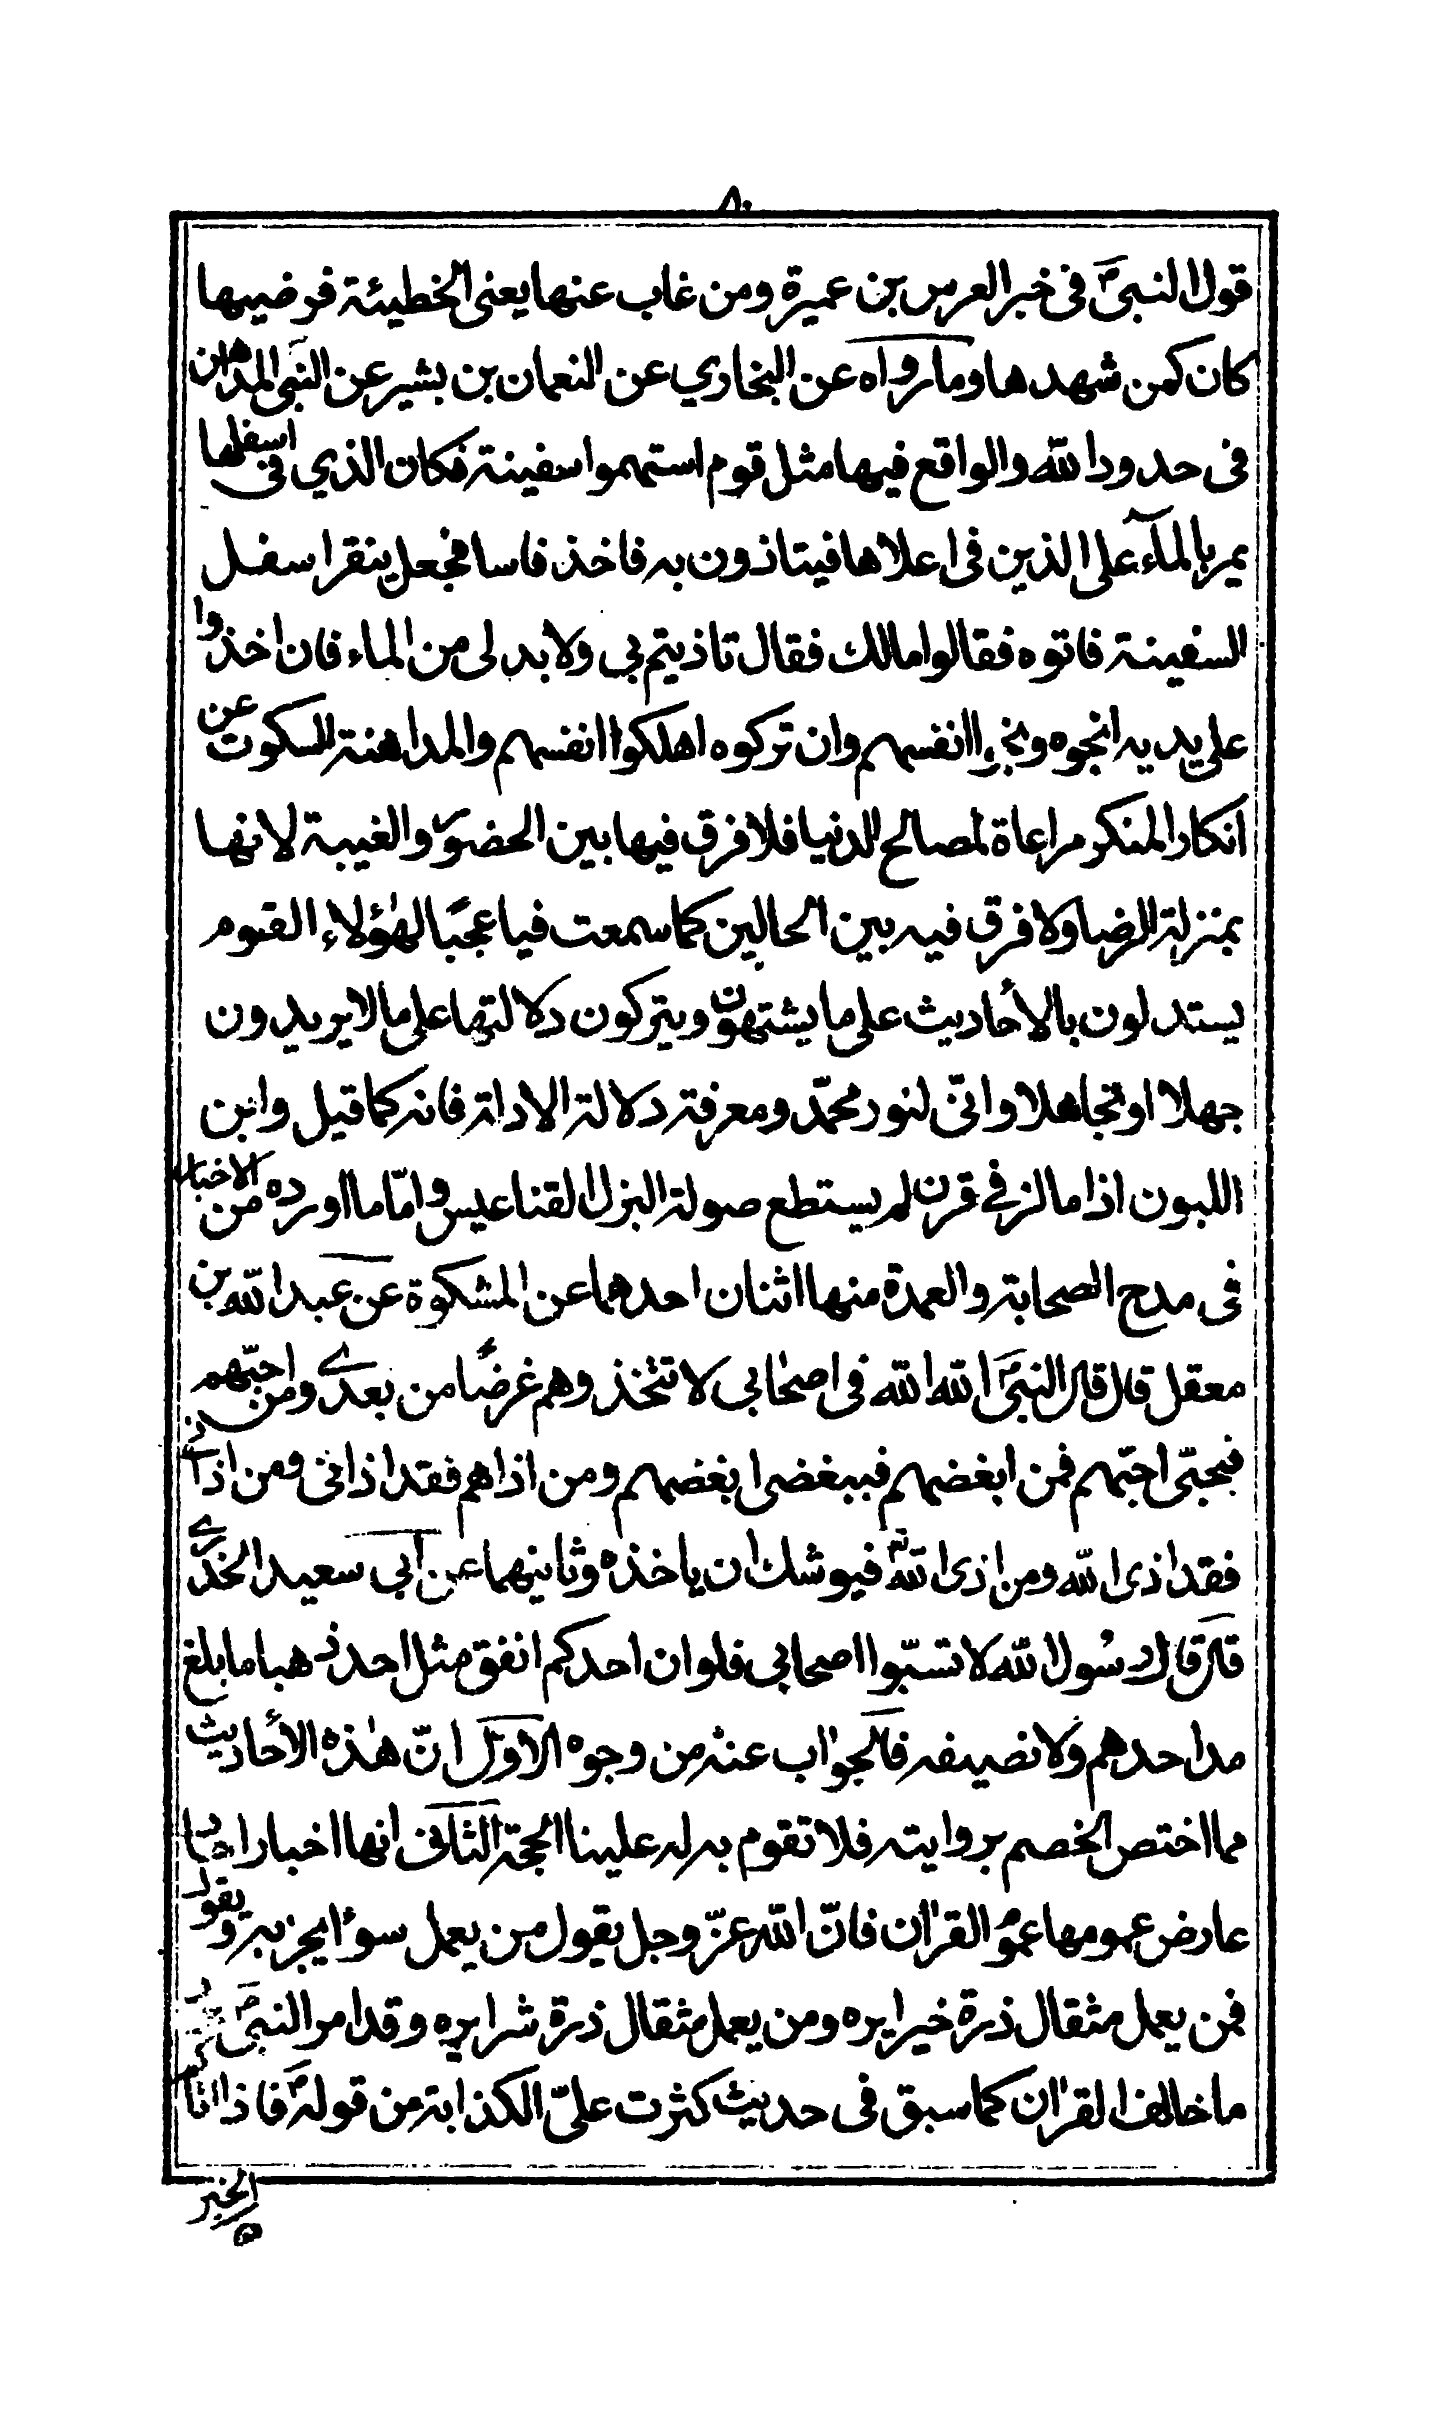 ٨٠
قول النبیؐ فی خبر العرس بن عميرة ومن غاب عنها يعنی الخطيئة فرضيها
كان كمن شهدها وما رواه عن البخاري عن النعمان بن بشير عن النبیؐ المداهن
فی حدود الله والواقع فيها مثل قوم استهموا سفينة فكان الذي فی اسفلها
يمر بالمآء علی الذين فی اعلاها فيتاذون به فاخذ فاسا فجعل ينقر اسفل
السفينة فاتوه فقالوا مالك فقال تاذيتم بی ولابد لی من الماء فان اخذوا
علی يديه انجوه ونجوا انفسهم وان تركوه اهلكوا انفسهم والمداهنة السكوت عن
انكار المنكر مراعاة لمصالح الدنيا فلا فرق فيها بين الحضور والغيبة لانها
بمنزلة الرضا ولا فرق فيه بين الحالين كما سمعت فيا عجبًا لهٰؤلاء القوم
يستدلون بالأحاديث علی ما يشتهون ويتركون دلالتها علی مالا يريدون
جهلا او تجاهلا وانّی لنور محمّد ومعرفة دلالة الادلة فانه كما قيل وابن
اللبون اذا مالز فی قرن لم يستطع صولة البزل القناعيس وامّا ما اورده من الاخبار
فی مدح الصحابة والعمدة منها اثنان احدهما عن المشكوة عن عبد الله بن
معقل قال قال النبیؐ الله الله فی اصحابی لا تتخذوهم غرضًا من بعدی ومن احبّهم
فبحبّی احبّهم فمن ابغضهم فببغضی ابغضهم ومن اذاهم فقد اذانی ومن اذانی
فقد اذی الله ومن اذی الله فيوشك ان ياخذه وثانيهما عن ابی سعيد الخدری
قال قال رسول الله لا تسبّوا اصحابی فلو ان احدكم انفق مثل احد ذهبا ما بلغ
مد احدهم ولا نصيفه فالجواب عنه من وجوه الاوّل انّ هٰذه الأحاديث
مما اختص الخصم بروايته فلا تقوم به له علينا الحجة الثانی انها اخبار احاد
عارض عمومها عموم القران فانّ الله عزّ وجل يقول من يعمل سوءًا يجز به ويقول
فمن يعمل مثقال ذرة خيرا يره ومن يعمل مثقال ذرة شرا يره وقد امر النبیؐ
ما خالف القران كما سبق فی حديث كثرت علیّ الكذابة من قولهؐ فاذا اتا
الخبر